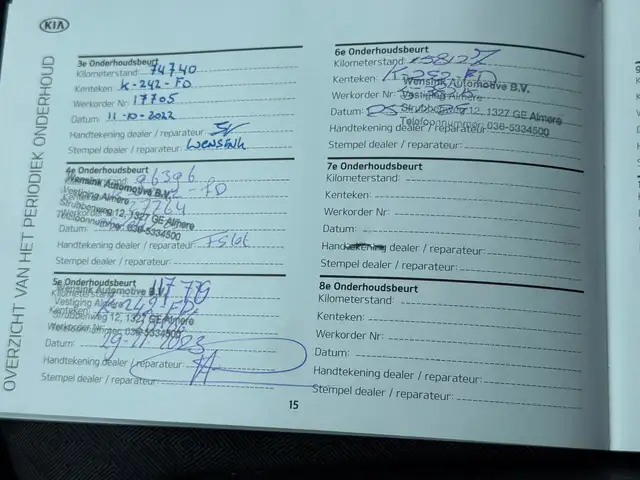 KIA
OVERZICHT VAN HET PERIODIEK ONDERHOUD
3e Onderhoudsbeurt
Kilometerstand: 74740
Kenteken: K-242-FD
Werkorder Nr: 17705
Datum: 11-10-2022
Handtekening dealer / reparateur:
Stempel dealer / reparateur: WENSINK
4e Onderhoudsbeurt
96396
Wensink Automotive B.V.
Vestiging Almere
Strubbenweg 12, 1327 GE Almere
Telefoonnummer: 036-5334500
Datum:
Handtekening dealer / reparateur:
Stempel dealer / reparateur:
5e Onderhoudsbeurt
Wensink Automotive B.V.
Kilometerstand:
Vestiging Almere
Kenteken:
Strubbenweg 12, 1327 GE Almere
Werkorder Nr:
Telefoonnummer: 036-5334500
Datum: 29-11-2023
Handtekening dealer / reparateur:
Stempel dealer / reparateur:
6e Onderhoudsbeurt
Kilometerstand:
Kenteken:
Wensink Automotive B.V.
Werkorder Nr:
Vestiging Almere
Datum:
Strubbenweg 12, 1327 GE Almere
Telefoonnummer: 036-5334500
Handtekening dealer / reparateur:
Stempel dealer / reparateur:
7e Onderhoudsbeurt
Kilometerstand:
Kenteken:
Werkorder Nr:
Datum:
Handtekening dealer / reparateur:
Stempel dealer / reparateur:
8e Onderhoudsbeurt
Kilometerstand:
Kenteken:
Werkorder Nr:
Datum:
Handtekening dealer / reparateur:
Stempel dealer / reparateur:
15